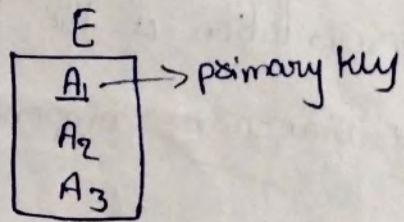 E
A1 → primary key
A2
A3